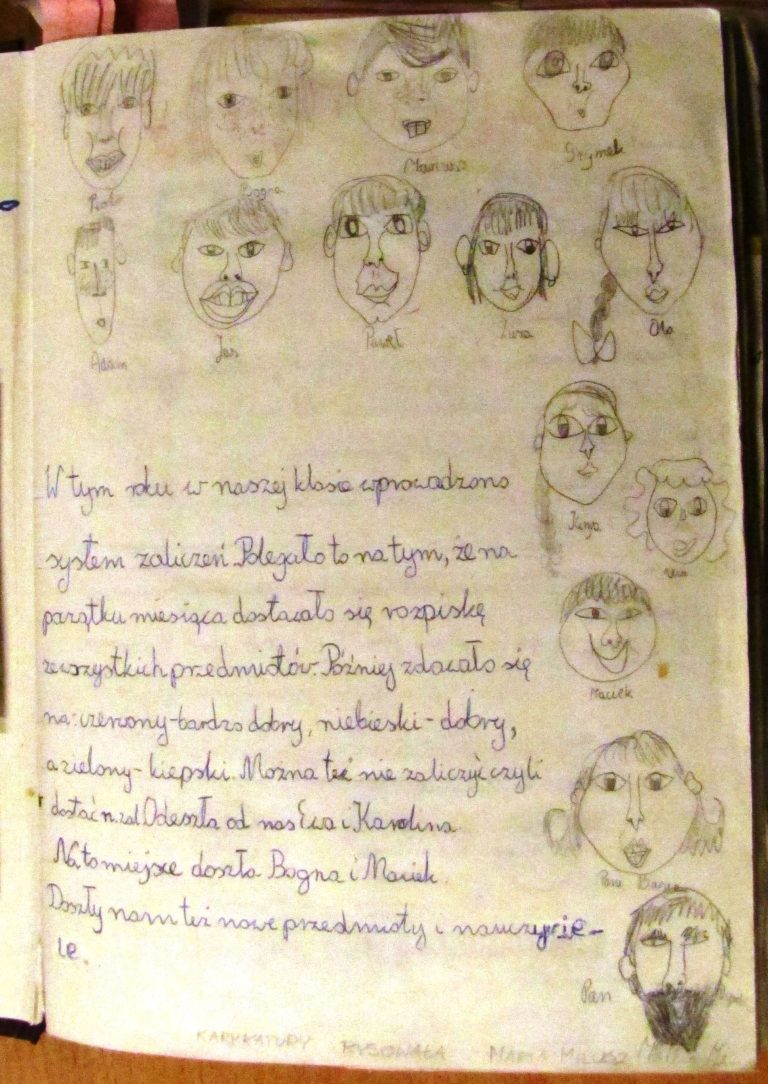 Bogna
Mariusz
Grymek
Adam
Jaś
Paweł
Zuza
Ola
Kinga
Maciek
W tym roku w naszej klasie wprowadzono
system zaliczeń. Polegało to na tym, że na
początku miesiąca dostawało się rozpiskę
ze wszystkich przedmiotów. Później zdawało się
na: czerwony-bardzo dobry, niebieski-dobry,
a zielony-kiepski. Można też nie zaliczyć czyli
dostać n.zal. Odeszła od nas Ewa i Karolina
Na to miejsce doszła Bogna i Maciek.
Doszły nam też nowe przedmioty i nauczycie-
le.
Pani
Pan
KARYKATURY RYSOWAŁA